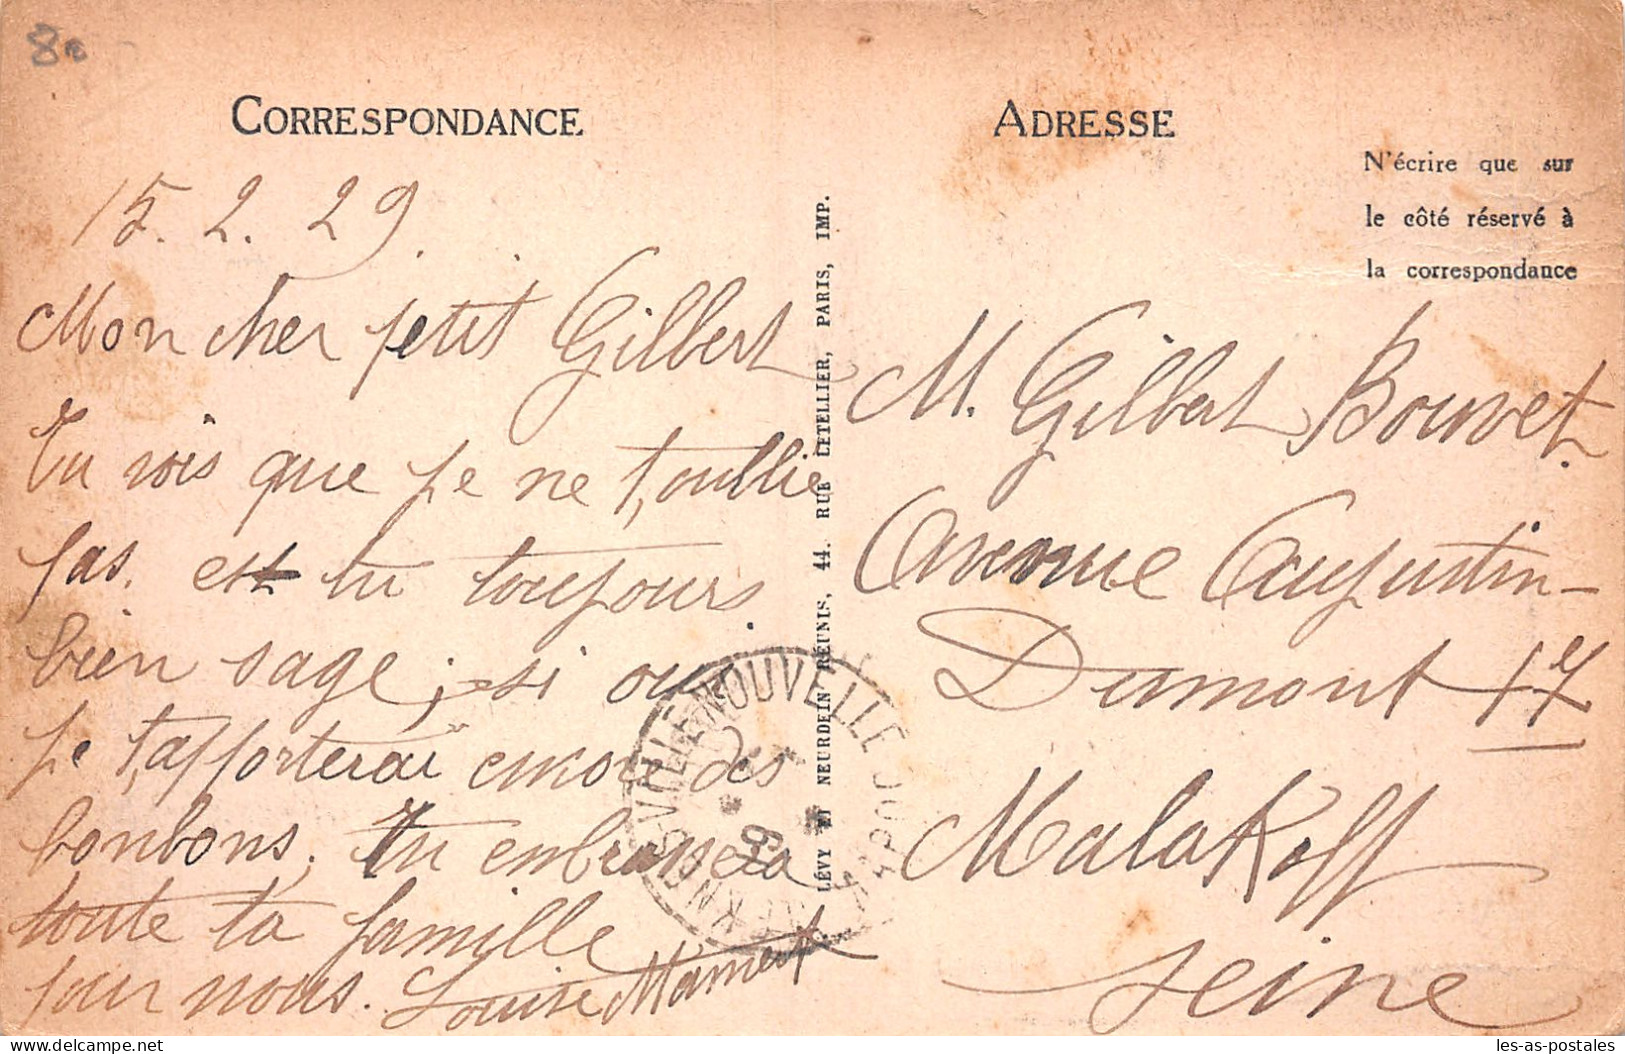 8€
CORRESPONDANCE
15. 2. 29.
Mon cher petit Gilbert
Tu vois que je ne t,oublie
pas. est tu toujours
bien sage; si oui
je t,apporterai encor des
bonbons. Tu embrassera
toute ta famille
pour nous. Louise Mamert
LÉVY ET NEURDEIN RÉUNIS, 44. RUE LETELLIER, PARIS, IMP.
NOUVELLE
ADRESSE
N'écrire que sur
le côté réservé à
la correspondance
M. Gilbert Bouvet.
Avenue Augustin-
Dumont 17
Malakoff
Seine
les-as-postales
delcampe.net